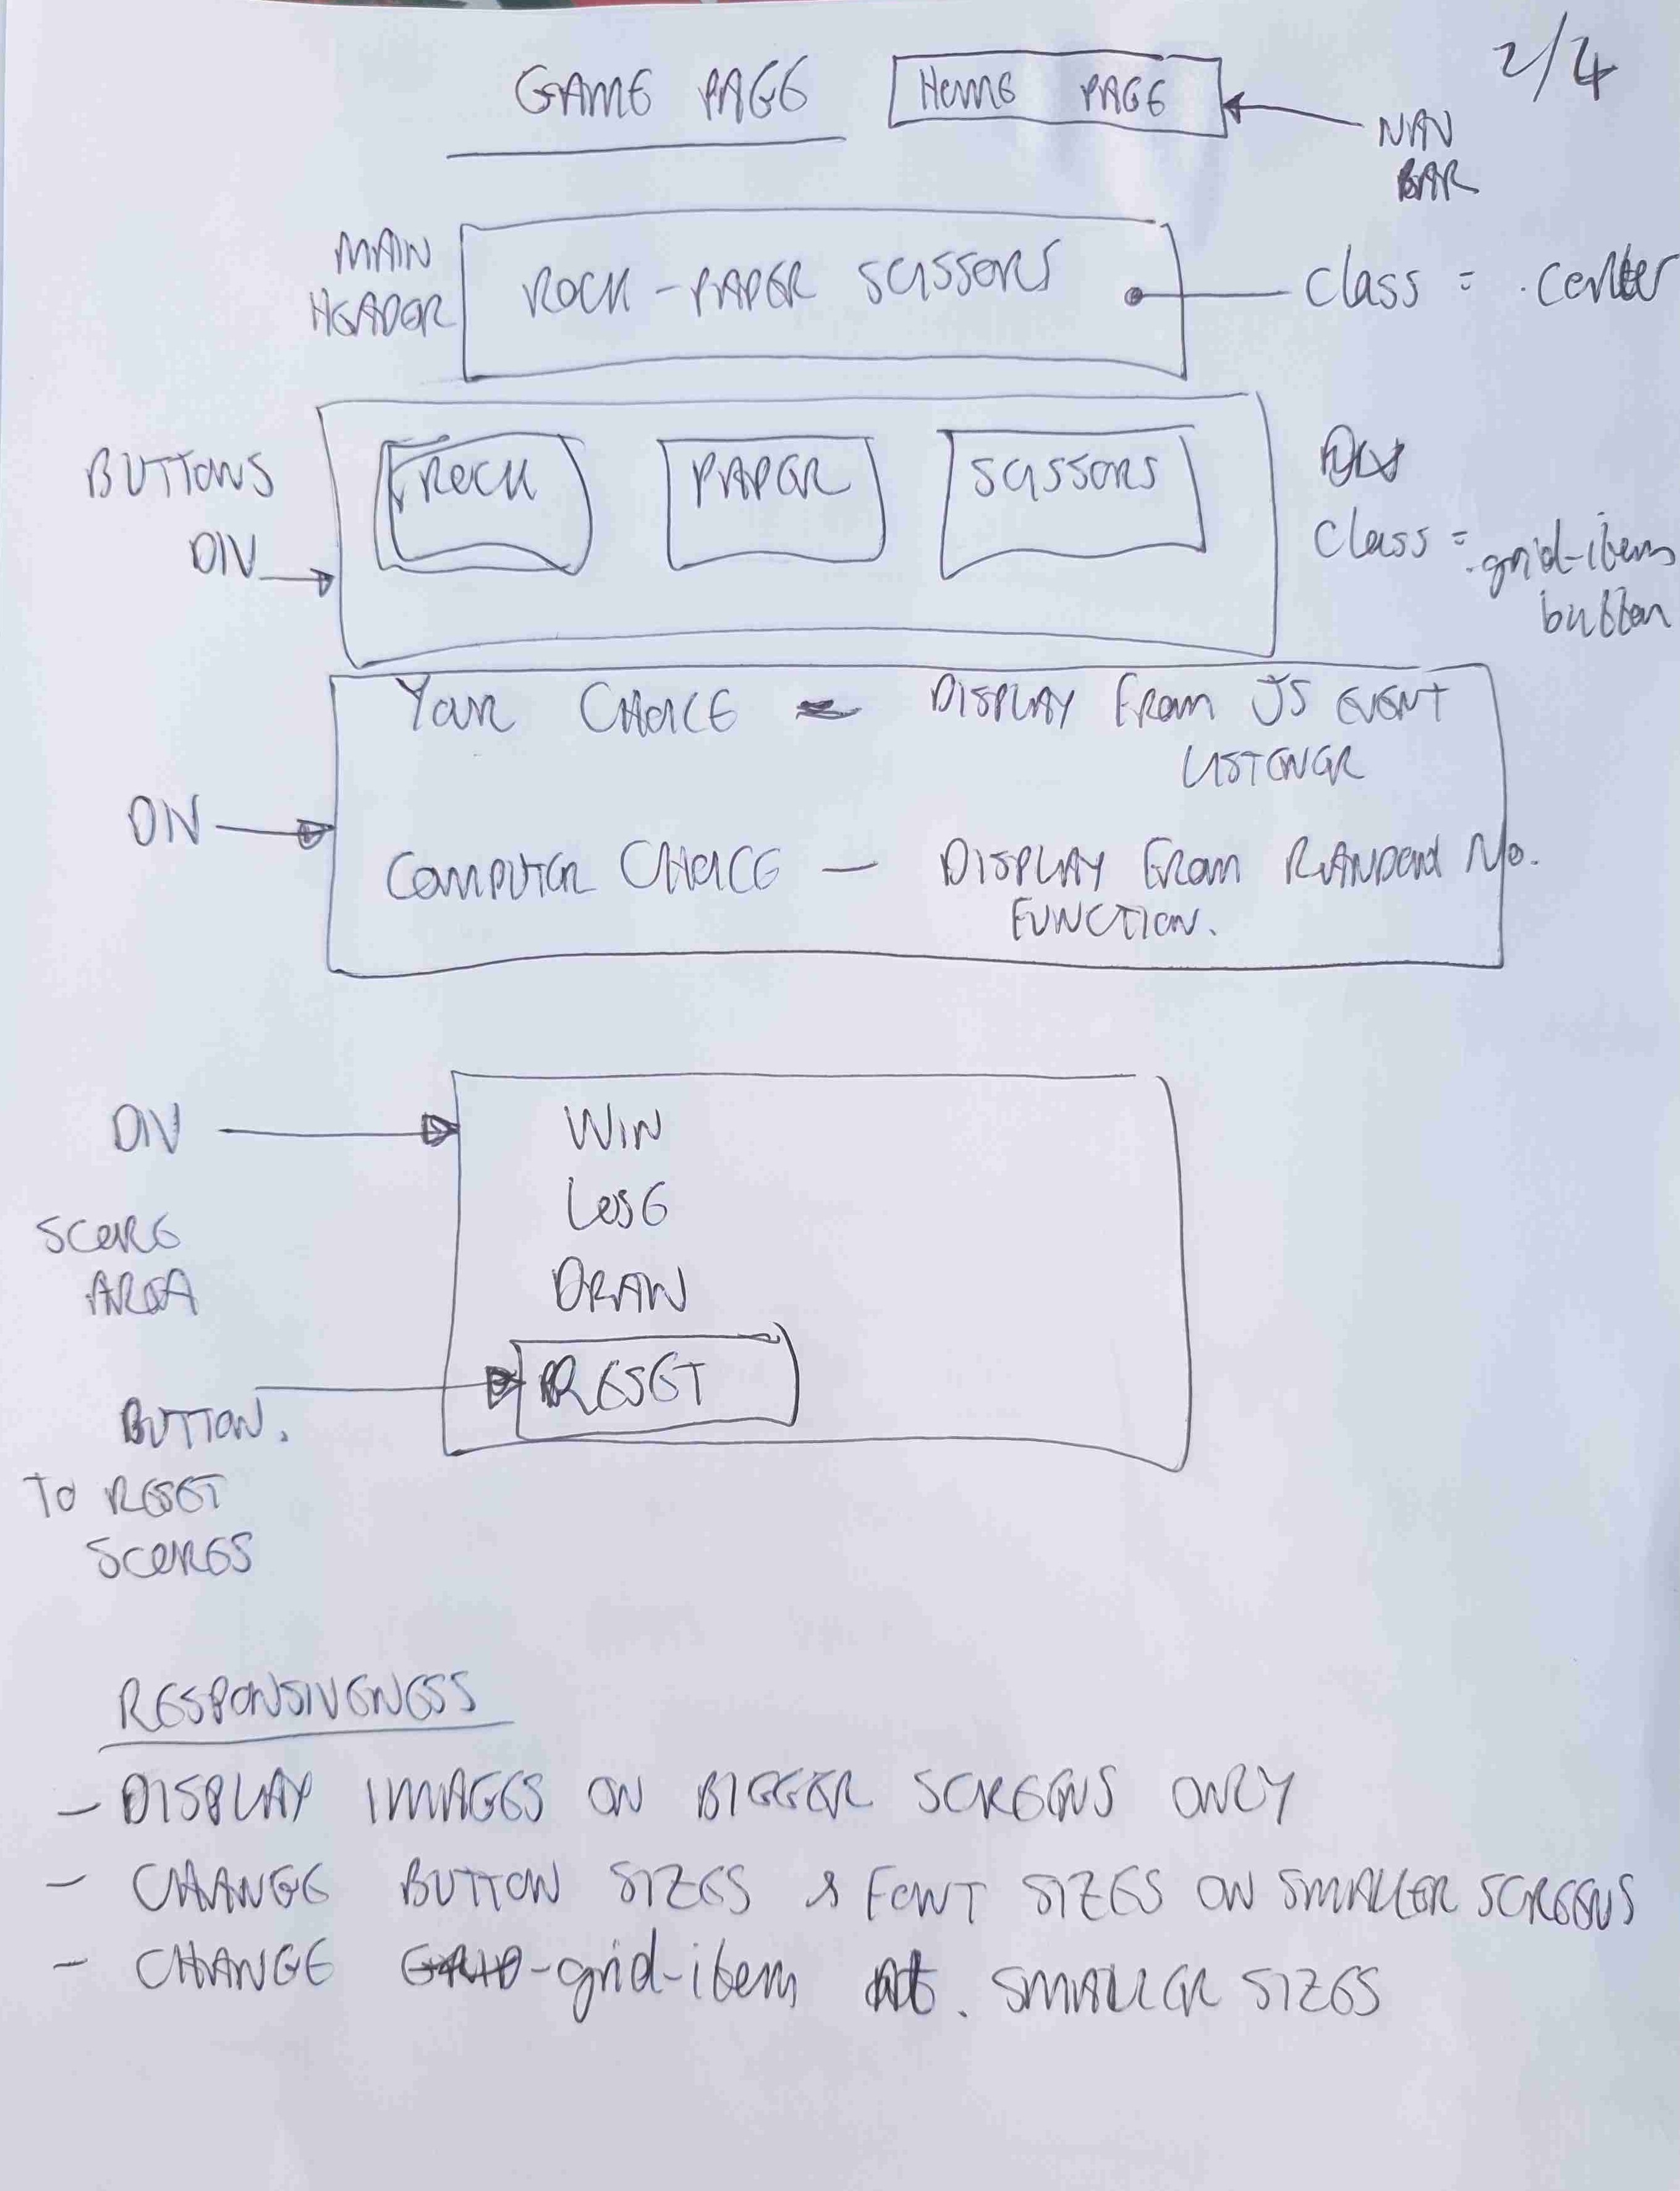 2/4
GAME PAGE
HOME PAGE
NAV
BAR
MAIN
HEADER
ROCK - PAPER SCISSORS
class = .center
BUTTONS
DIV
ROCK
PAPER
SCISSORS
class =
.grid-item
button
YOUR CHOICE - DISPLAY FROM JS EVENT
LISTENER
DIV
COMPUTER CHOICE - DISPLAY FROM RANDOM No.
FUNCTION.
DIV
SCORE
AREA
WIN
LOSE
DRAW
RESET
BUTTON.
TO RESET
SCORES
RESPONSIVENESS
- DISPLAY IMAGES ON BIGGER SCREENS ONLY
- CHANGE BUTTON SIZES & FONT SIZES ON SMALLER SCREENS
- CHANGE -grid-item At. SMALLER SIZES